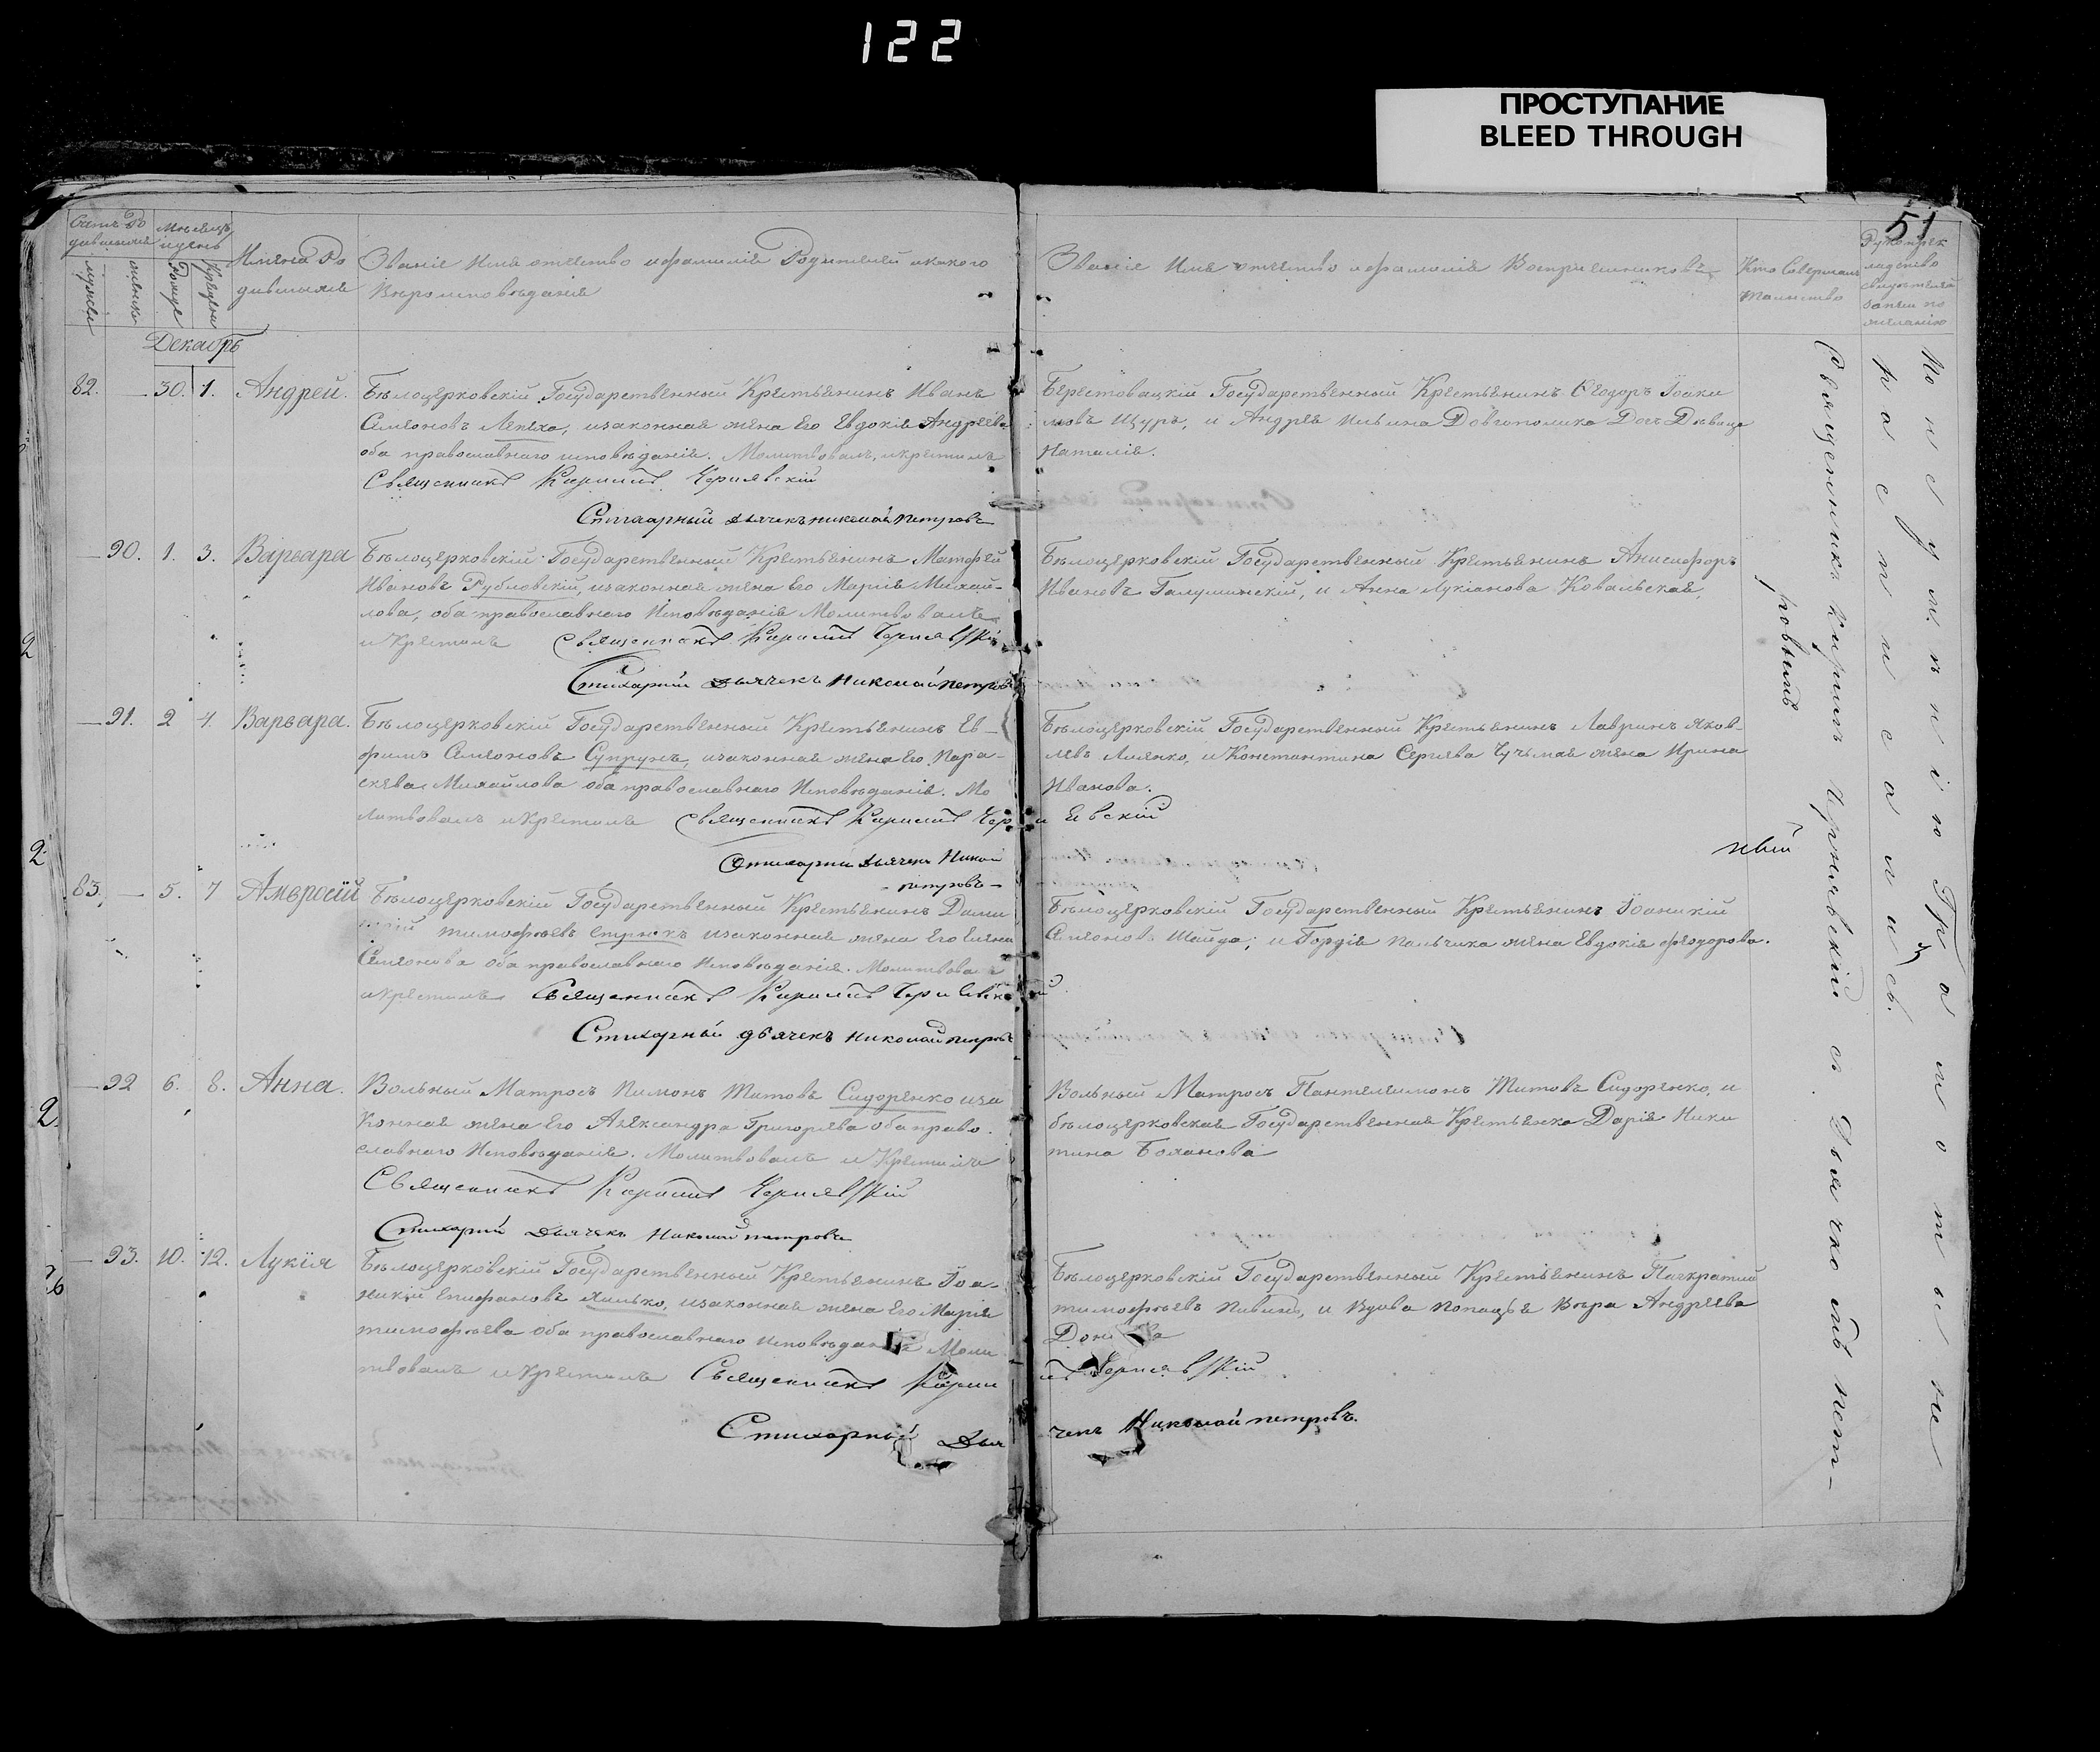 122
ПРОСТУПАНИЕ
BLEED THROUGH
51
Счетъ Ро
дившихся
Мѣсяцъ
и день
мужска
женска
Рожде
Крещен
Имена Ро
дившихся
Званіе Имя отчество и фамилія Родителей и какого
Вѣроисповѣданія
Званіе Имя отчество и фамилія Воспріемниковъ
Кто Совершалъ
Таинство
Рукоприк
ладство
свидѣтелей
записи по
желанію
Декабрь
82. — 30. 1. Андрей.
Бѣлоцерковскій Государственный Крестьянинъ Иванъ
Семеоновъ Лепеха, изаконная жена Его Евдокія Андреева
оба православнаго исповѣданія. Молитвовалъ, икрестилъ
Священникъ Кирилъ Чернявскій
Стихарный дьячекъ николай петровъ
Берестовацкій Государственный Крестьянинъ Ѳеодоръ Іоаки
мовъ Щуръ, и Андрея Ильина Довгополика Дочь Дѣвица
Наталія.
— 90. 1. 3. Варвара
Бѣлоцерковскій Государственный Крестьянинъ Матфей
Ивановъ Рубловскій, изаконная жена Его Марія Михай-
лова, оба православнаго Исповѣданія Молитвовалъ
и Крестилъ Священникъ Кирилъ Чернявскій
Стихарній дьячекъ Николай петровъ
Бѣлоцерковскій Государственный Крестьянинъ Анисифоръ
Ивановъ Галушинскій, и Анна Лукіанова Ковальская.
— 91. 2 4. Варвара.
Бѣлоцерковскій Государственный Крестьянинъ Ев-
фимъ Семеоновъ Супрунъ, изаконная жена Его Пара-
скева Михайлова оба православнаго Исповѣданія. Мо
литвовалъ и Крестилъ Священникъ Кирилъ Чернявскій
Стихарни дьячекъ Никол
петровъ —
Бѣлоцерковскій Государственный Крестьянинъ Лавринъ Яков-
левъ Лиенко, и Константина Сергіева Чучьмая жена Ирина
Иванова.
83. — 5. 7 Амвросій
Бѣлоцерковскій Государственный Крестьянинъ Дами
тимофѣевъ стрюкъ изаконная жена Его Елена
Семеонова оба православнаго Исповѣданія. Молитвовалъ
икрестилъ Священникъ Кирилъ Чернявскій
Стихарный дьячекъ николай петровъ
Бѣлоцерковскій Государственный Крестьянинъ Іоаникій
Семеоновъ Шайда, и Гордія Пальчика жена Евдокія Феодорова.
— 92 6. 8. Анна.
Вольный Матросъ Пимонъ Титовъ Сидоренко иза
Конная жена Его Александра Григорьева оба право.
славнаго Исповѣданія. Молитвовалъ и Крестилъ
Священникъ Кирилъ Чернявскій
Стихарній дьячекъ Николай петровъ
Вольный Матросъ Пантелеимонъ Титовъ Сидоренко, и
бѣлоцерковская Государственная Крестьянка Дарія Ники
тина Боханова
— 93. 10. 12. Лукія
Бѣлоцерковскій Государственный Крестьянинъ Іоа-
никій Епифановъ Хилько, изаконная жена Его Марія
тимофѣева оба православнаго исповѣданія Моли
твовалъ и Крестилъ Священникъ Кирилъ Чернявскій
Стихарный Дьячекъ Николай петровъ.
Бѣлоцерковскій Государственный Крестьянинъ Панкратий
тимофѣевъ Пивинъ, и Вдова Попадья Вѣра Андреева
Священникъ Кирилъ Чернявскій съ Дьячкомъ Пет-
ровымъ
По неумѣнію Грамоты не
расписались.